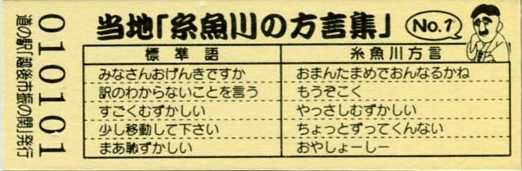 当地「糸魚川の方言集」 No.1
標準語 糸魚川方言
みなさんおげんきですか おまんたまめでおんなるかね
訳のわからないことを言う もうぞこく
すごくむずかしい やっさしむずかしい
少し移動して下さい ちょっとずってくんない
まあ恥ずかしい おやしょーしー
010101
道の駅「越後市振の関」発行